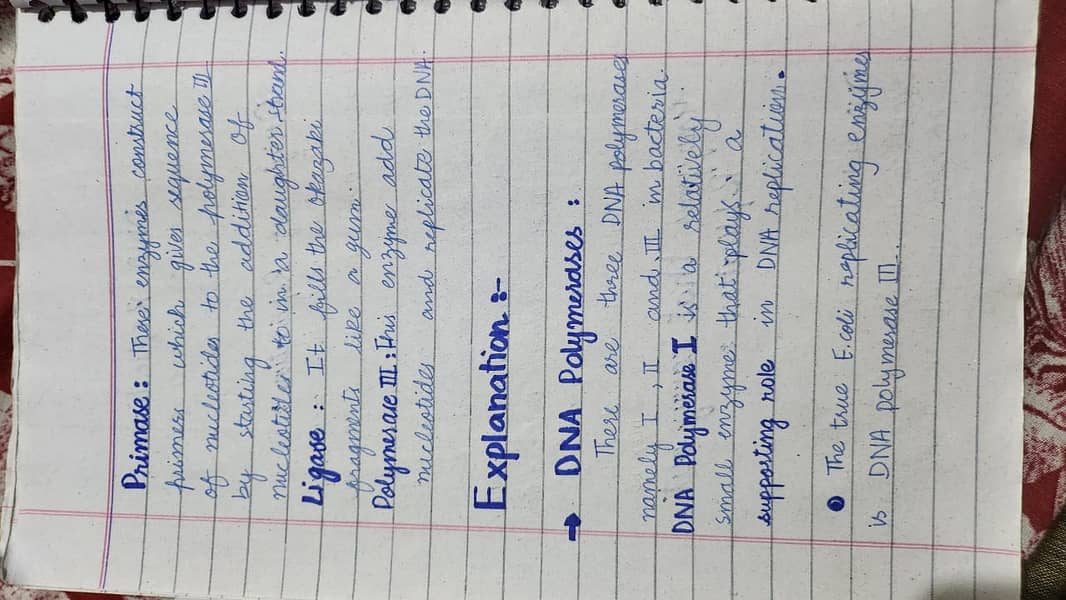 Primase : These enzymes construct
primer which gives sequence
of nucleotides to the polymerase III
by starting the addition of
nucleotides to in a daughter stand.
Ligase : It fills the Okazaki
fragments like a gum
Polymerase III : This enzyme add
nucleotides and replicate the DNA.
Explanation :-
→ DNA Polymerases :
These are three DNA polymerases
namely I, II and III in bacteria.
DNA Polymerase I is a relatively
small enzyme that plays a
supporting role in DNA replication.
The true E.coli replicating enzymes
is DNA polymerase III.